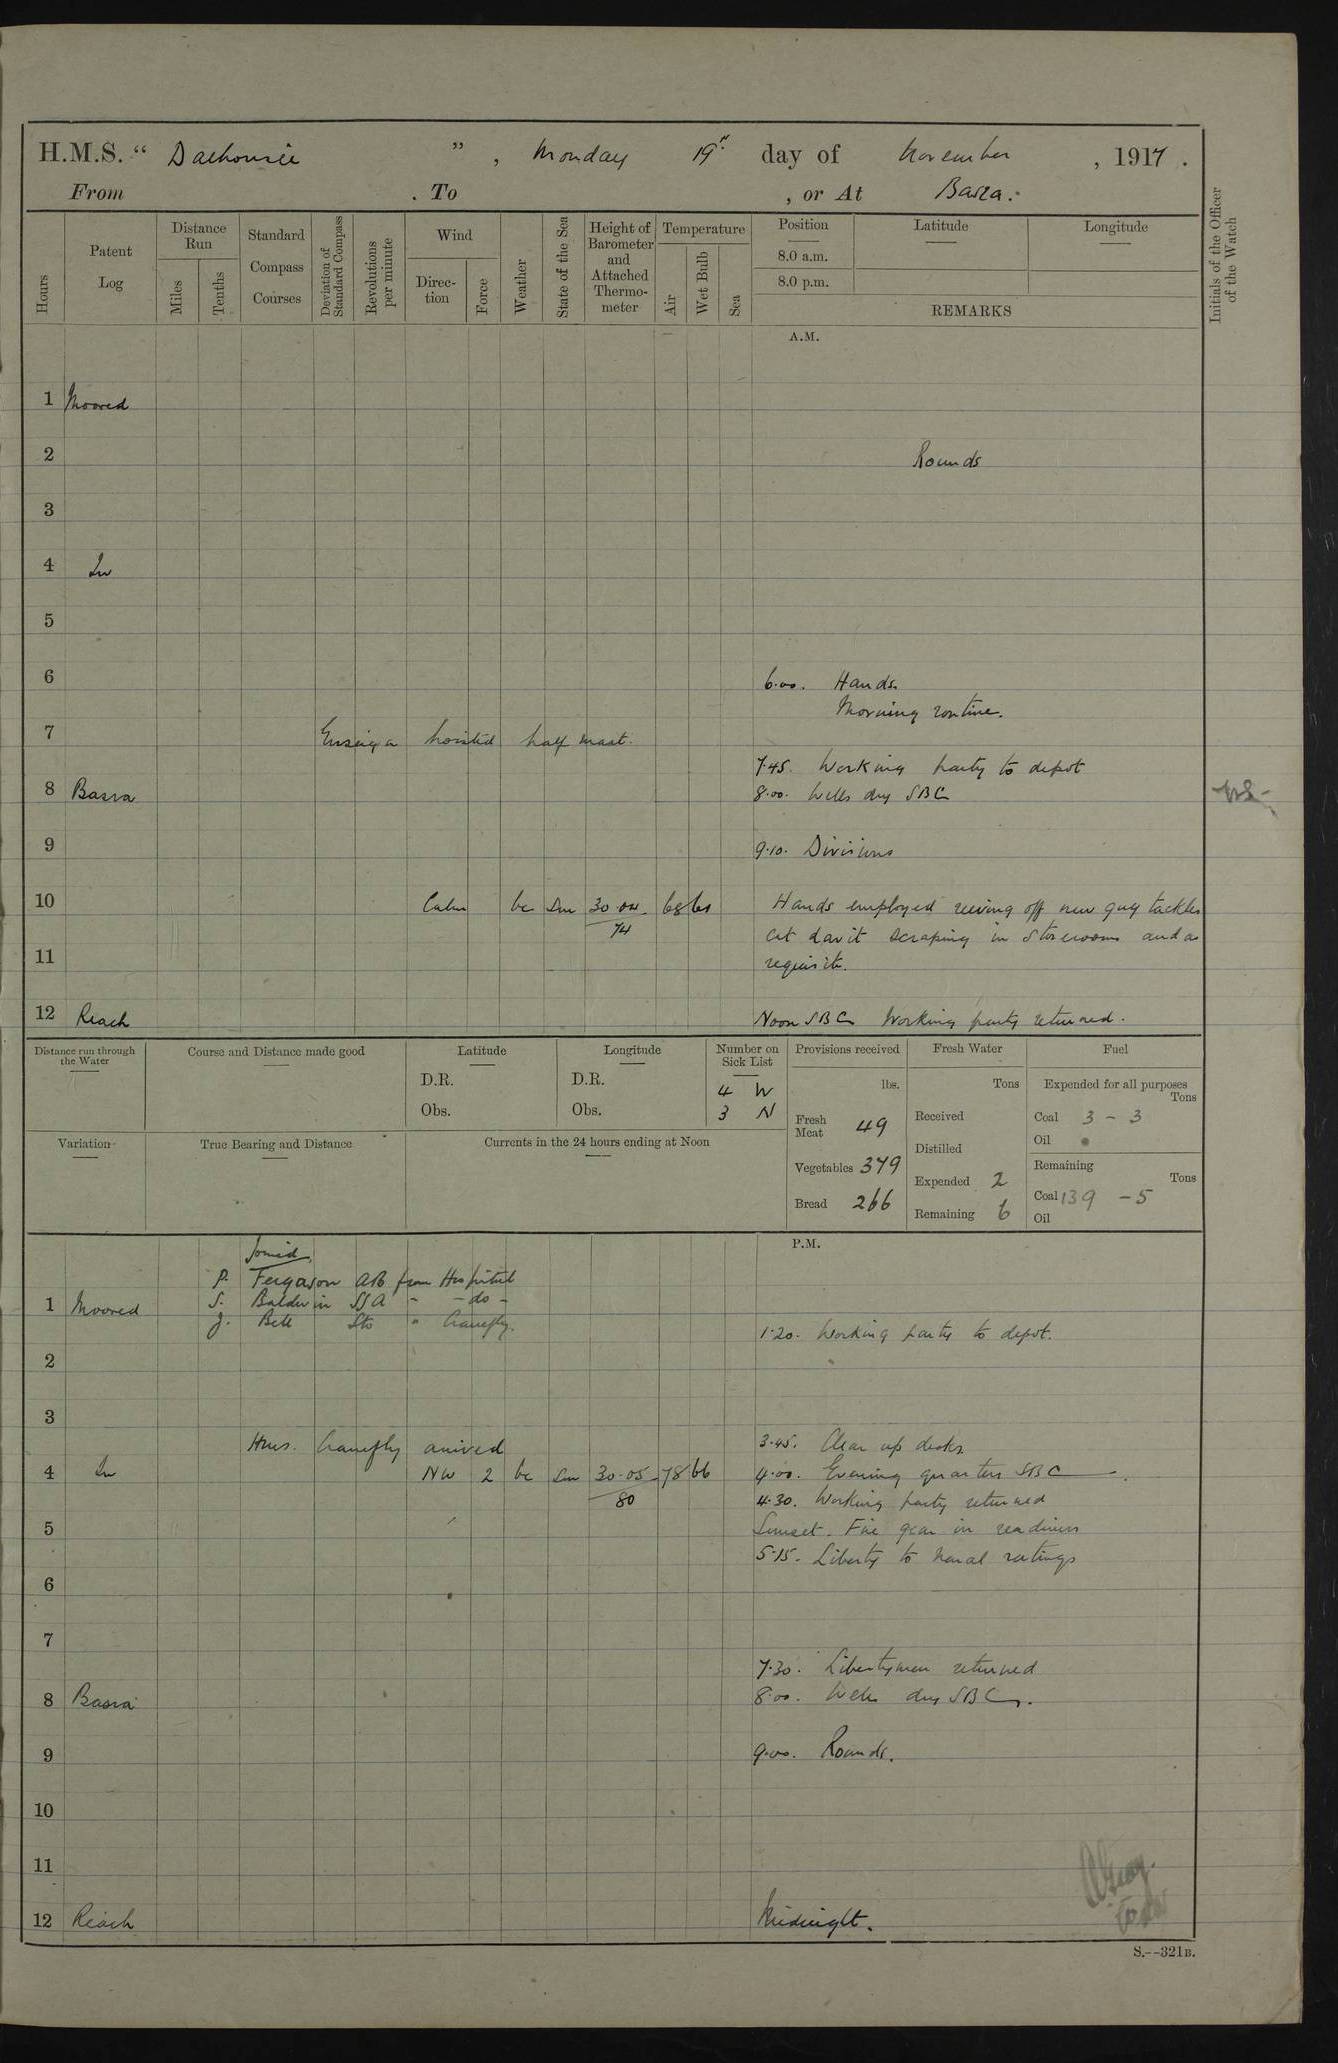 H.M.S. “ Dalhousie ” , Monday 19th day of November , 1917 .
From . To , or At Basra.
Hours
Patent Log
Distance Run
Miles
Tenths
Standard Compass Courses
Deviation of Standard Compass
Revolutions per minute
Wind
Direction
Force
Weather
State of the Sea
Height of Barometer and Attached Thermometer
Temperature
Air
Wet Bulb
Sea
Position
8.0 a.m.
8.0 p.m.
Latitude
Longitude
REMARKS
Initials of the Officer of the Watch
A.M.
1 Moored
2 Rounds
3
4 In
5
6 6.00. Hands.
Morning routine.
7 Ensign hoisted half mast.
7.45. Working party to depot
8 Basra 8.00. Wells dry SBC
9 9.10. Divisions
10 Calm bc Sm 30.04 68 61 Hands employed reeving off new guy tackles
74 Cat davit scraping in Storerooms and as
11 requisite.
12 Reach Noon SBC Working party returned.
Distance run through the Water
Course and Distance made good
Latitude
D.R.
Obs.
Longitude
D.R.
Obs.
Number on Sick List
4 W
3 N
Provisions received
lbs.
Fresh Meat 49
Vegetables 379
Bread 266
Fresh Water
Tons
Received
Distilled
Expended 2
Remaining 6
Fuel
Expended for all purposes
Tons
Coal 3 - 3
Oil
Remaining
Tons
Coal 139 - 5
Oil
Variation
True Bearing and Distance
Currents in the 24 hours ending at Noon
P.M.
Joined
P. Ferguson AB from Hospital
1 Moored S. Baldwin SSA " - do -
J. Bell Sto " Cranefly.
1.20. Working party to depot.
2
3
Hms. Cranefly arrived 3.45. Clear up decks
4 In NW 2 bc Sm 30.05 78 66 4.00. Evening quarters SBC
80 4.30. Working party returned
5 Sunset. Fire gear in readiness
5.15. Liberty to Naval ratings
6
7
7.30. Libertymen returned
8 Basra 8.00. Wells dry SBC.
9 9.00. Rounds.
10
11
12 Reach Midnight.
S.--321B.